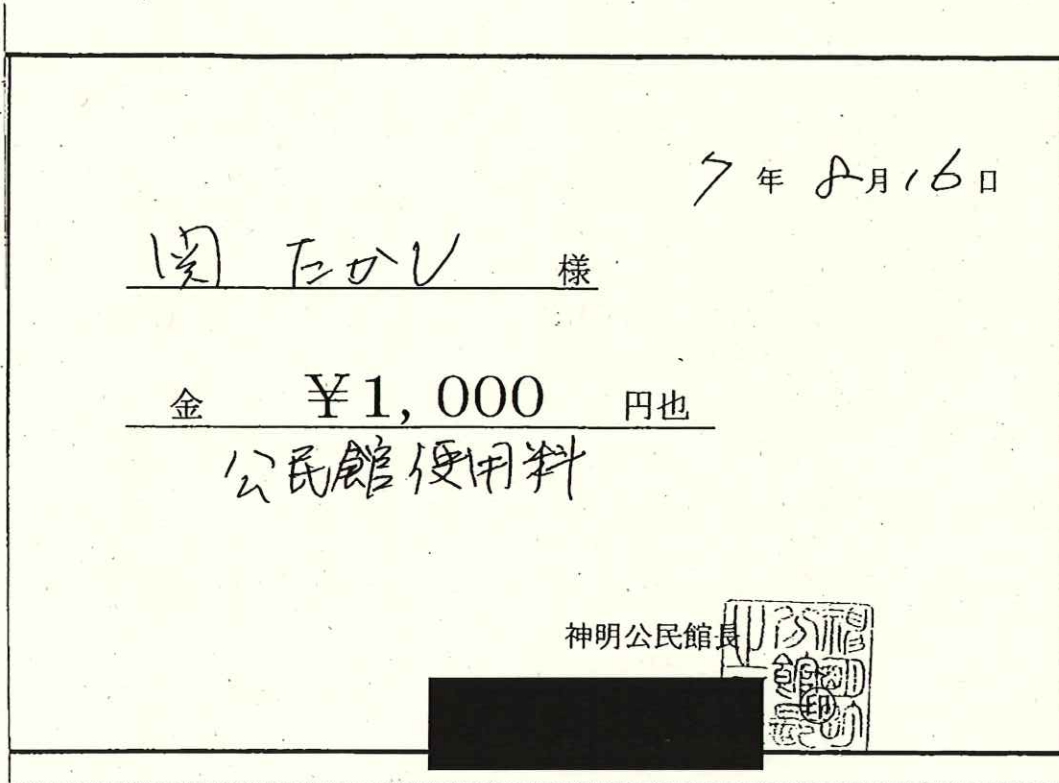 7年8月16日
関 たかし 様
金 ¥1,000 円也
公民館使用料
神明公民館長
印